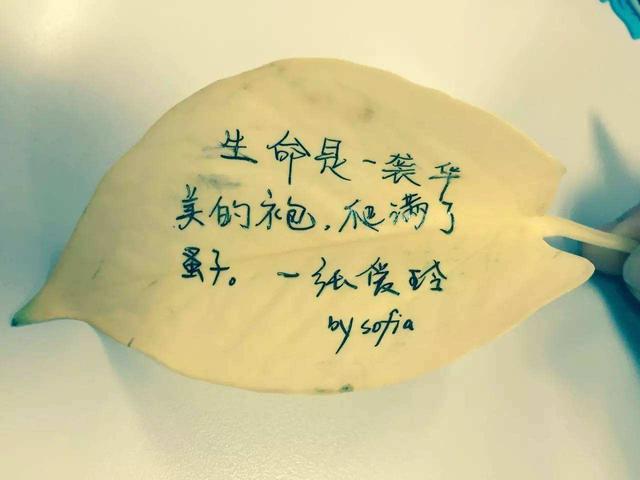 生命是一袭华
美的袍,爬满了
蚤子。一张爱玲
by sofia